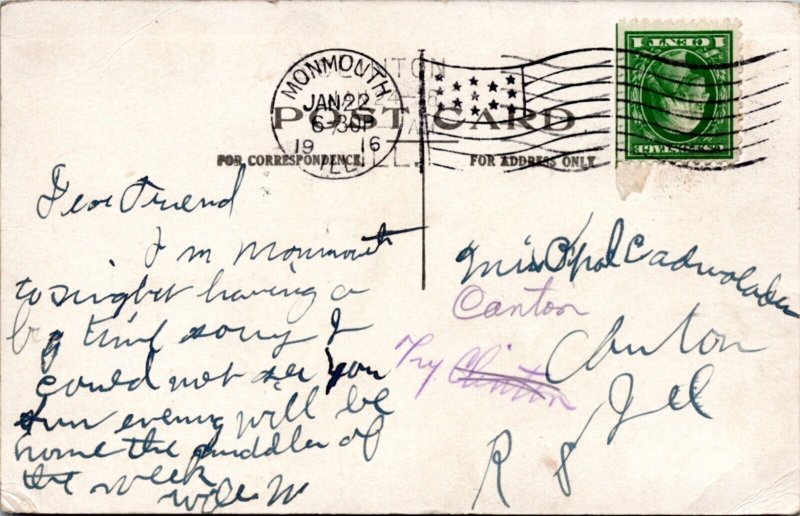 MONMOUTH
JAN 22
6-30P
19 16
ILL.
POST CARD
FOR CORRESPONDENCE
FOR ADDRESS ONLY
Dear Friend
I m Monmouth
to night having a
big time sorry I
could not see you
sun evening will be
home the middler of
the week
Miss Opal Cadwalader
Canton
Try Clinton
Canton
Ill
R 8